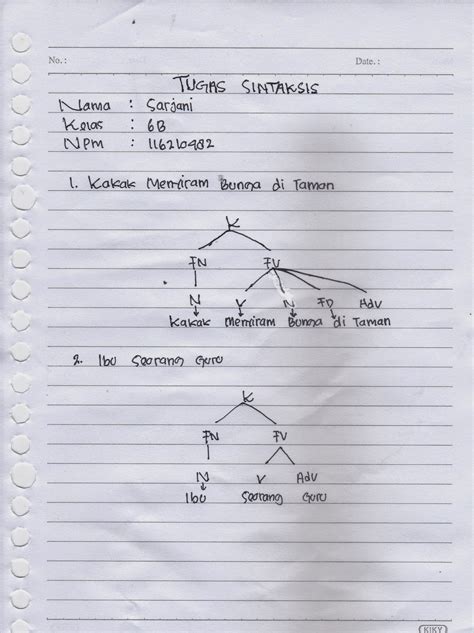 No.: Date.:
TUGAS SINTAKSIS
Nama : Sarjani
Kelas : 6B
NPM : 116210982
1. Kakak Menyiram Bunga di Taman
K
FN FV
N V N FD Adv
Kakak Menyiram Bunga di Taman
2. Ibu Seorang Guru
K
FN FV
N V Adv
Ibu Seorang Guru
KIKY